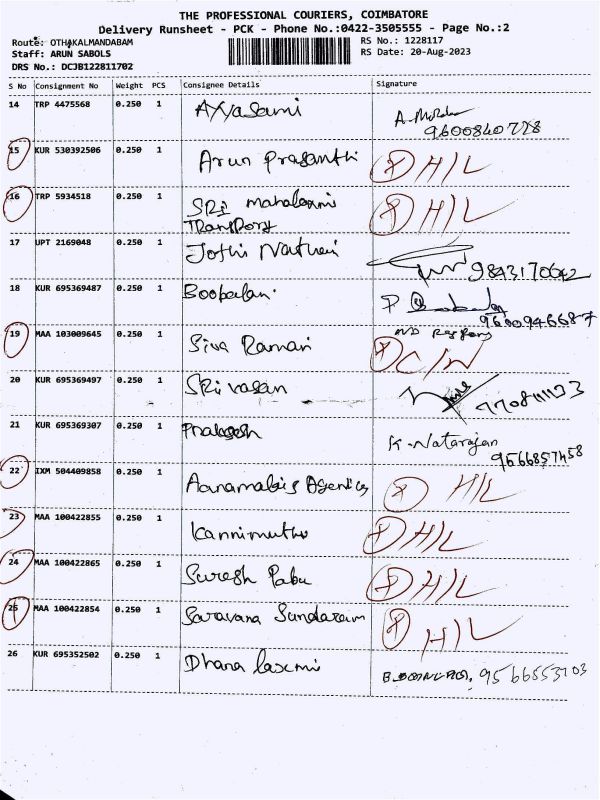 THE PROFESSIONAL COURIERS, COIMBATORE
Delivery Runsheet - PCK - Phone No.:0422-3505555 - Page No.:2
Route: OTHAKALMANDABAM
RS No.: 1228117
Staff: ARUN SABOLS
RS Date: 20-Aug-2023
DRS No.: DCJB122811702
S No Consignment No Weight PCS Consignee Details Signature
14 TRP 4475568 0.250 1 Ayyasami
15 KUR 530392506 0.250 1 Arun Prasanth H/L
16 TRP 5934518 0.250 1 SRi mahalaxmi H/L
TRansport
17 UPT 2169048 0.250 1 Jothi 9843170642
18 KUR 695369487 0.250 1 Boobalan P 9600946687
19 MAA 103009645 0.250 1 Siva Raman
20 KUR 695369497 0.250 1 SRivasan
21 KUR 695369307 0.250 1 Prakash K. Natarajan
22 IXM 504409858 0.250 1 Agencies H/L
23 MAA 100422855 0.250 1 Kannimuthu H/L
24 MAA 100422865 0.250 1 Suresh Babu H/L
25 MAA 100422854 0.250 1 Saravana Sundaram H/L
26 KUR 695352502 0.250 1 Dhana laxmi 9566553103